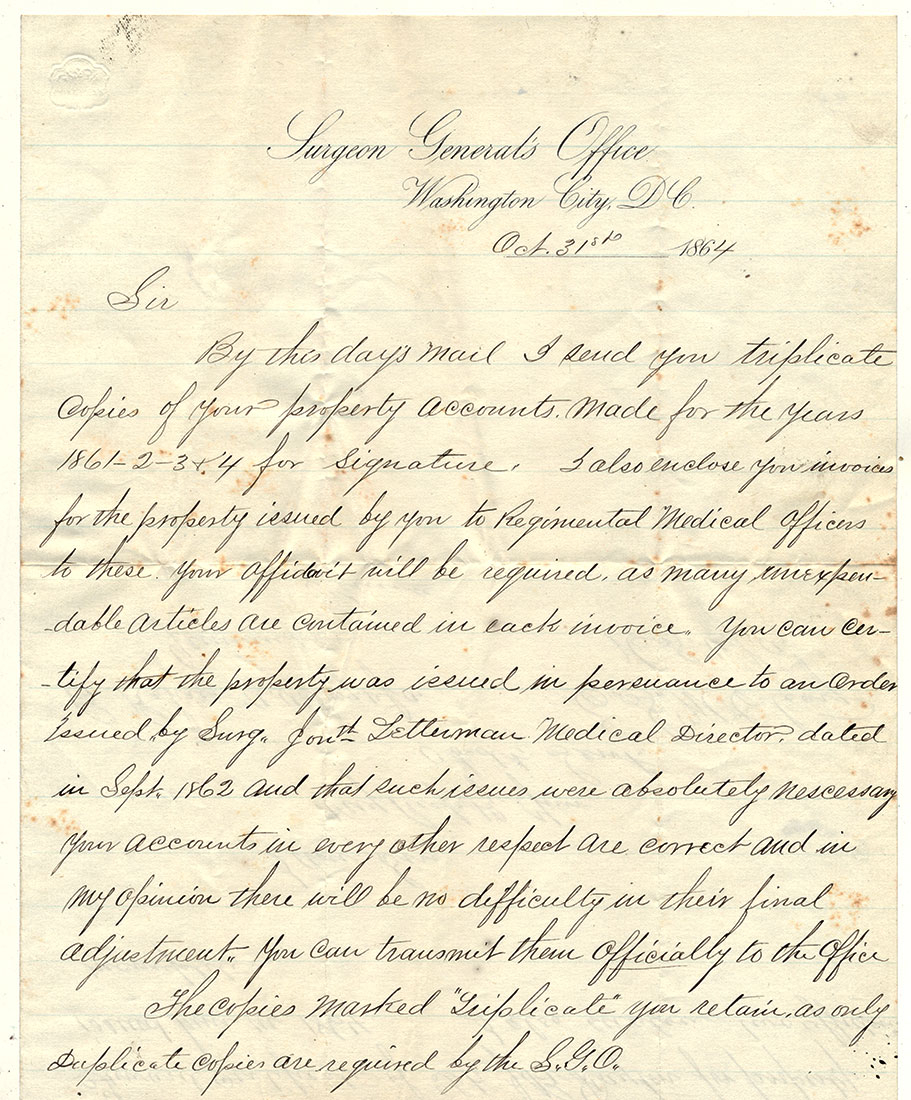 Surgeon General's Office
Washington City, D.C.
Oct. 31st 1864
Sir
By this day's mail I send you triplicate
Copies of your property accounts. Made for the years
1861-2-3 & 4 for Signature. I also enclose you invoices
for the property issued by you to Regimental Medical Officers
to these. Your affidavit will be required, as many unexpen-
-dable articles are contained in each invoice. You can cer-
-tify that the property was issued in persuance to an Order
issued by Surg. Jonth Letterman Medical Director, dated
in Sept. 1862 and that such issues were absolutely nescessary
Your accounts in every other respect are correct and in
my opinion there will be no difficulty in their final
adjustment. You can transmit them officially to the Office
The copies marked "Triplicate" you retain, as only
Duplicate copies are required by the S.G.O.